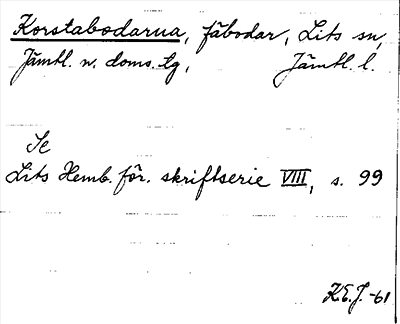 Korstabodarna, fäbodar, Lits sn,
Jämtl. n. doms. tg, Jämtl. l.
Se
Lits Hemb. för. skriftserie VIII, s. 99
K.E.J. -61